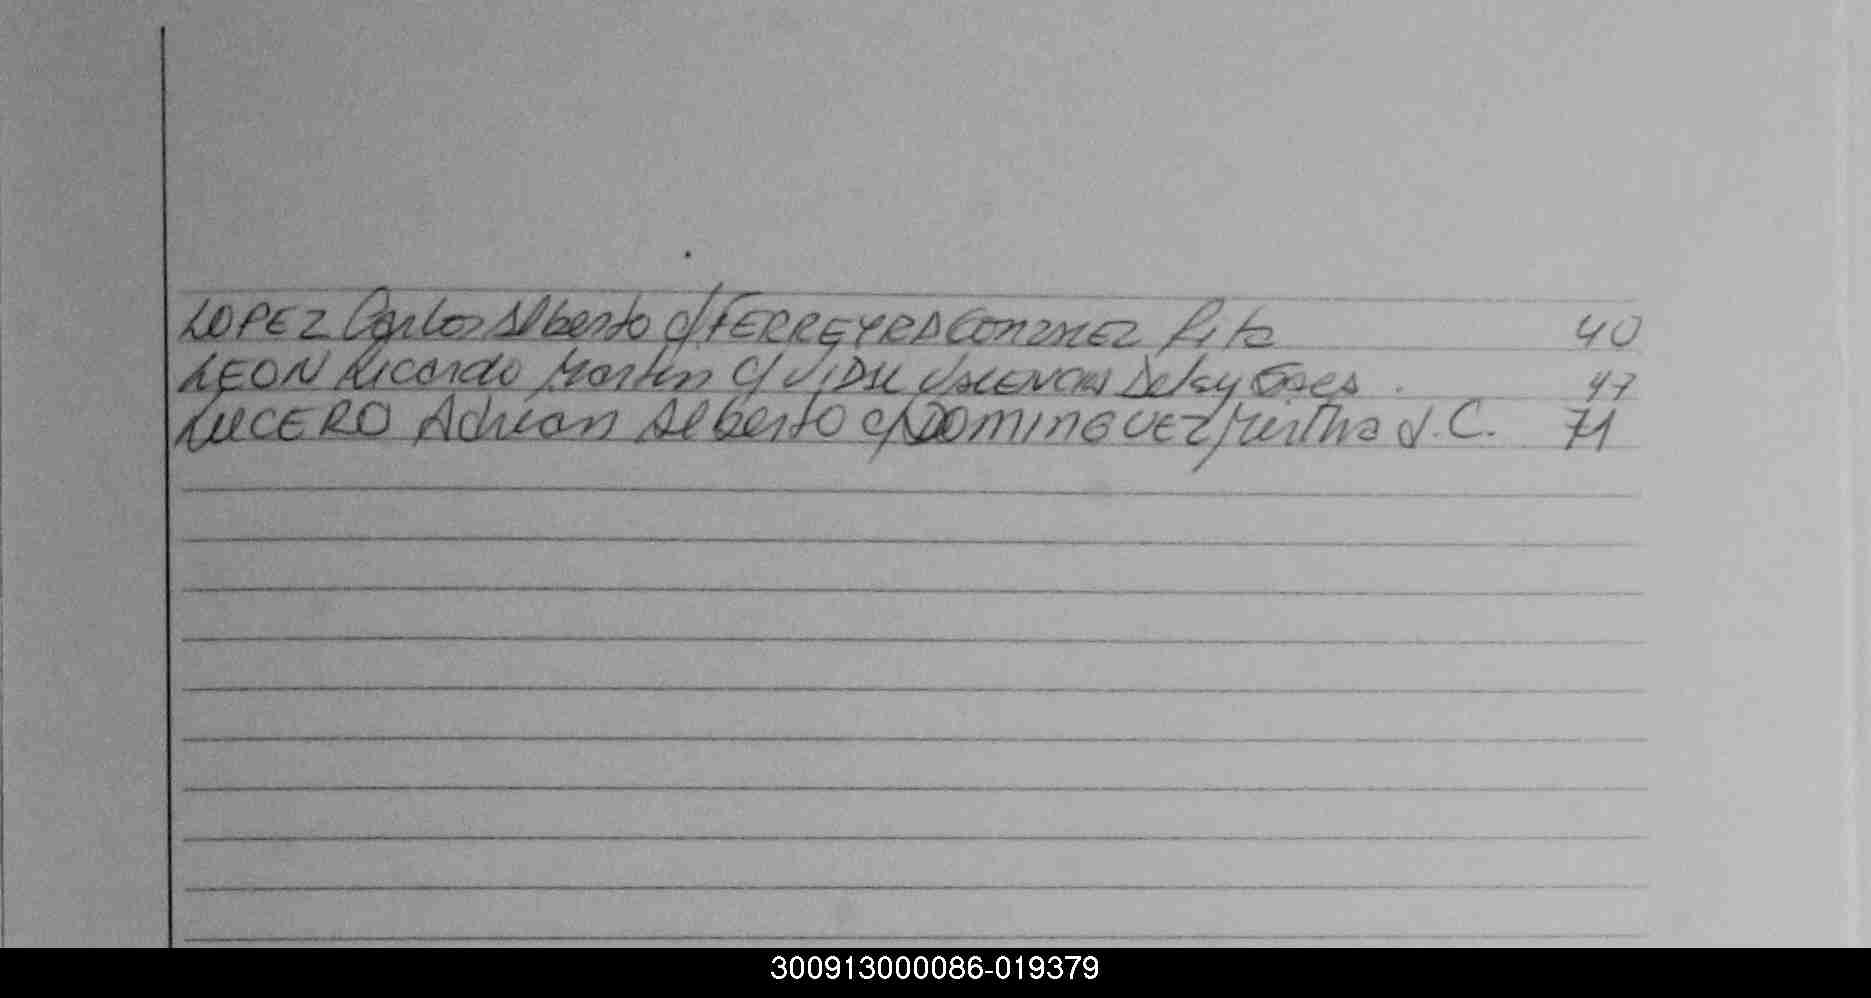 LOPEZ Carlos Alberto c/ FERREYRA GONZALEZ Rita 40
LEON Ricardo Martin c/ VIDAL VALENCIA Delsy 47
LUCERO Adrian Alberto c/ DOMINGUEZ Mirtha d. C. 71
300913000086-019379